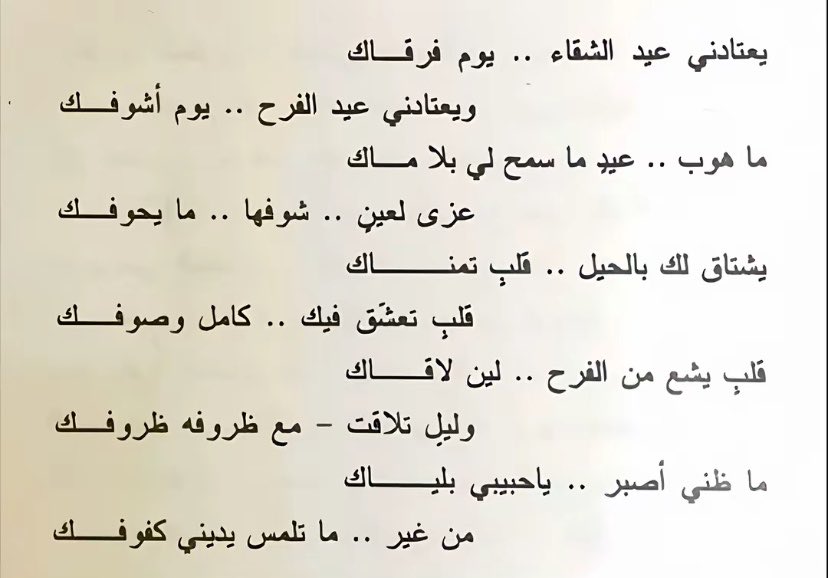 يعتادني عيد الشقاء .. يوم فرقـــاك
ويعتادني عيد الفرح .. يوم أشوفـــك
ما هوب .. عيدٍ ما سمح لي بلا مـــاك
عزى لعينٍ .. شوفها .. ما يحوفـــك
يشتاق لك بالحيل .. قلبٍ تمنـــــاك
قلبٍ تعشَق فيك .. كامل وصوفـــك
قلبٍ يشع من الفرح .. لين لاقـــــاك
وليلٍ تلاقت – مع ظروفه ظروفـــك
ما ظني أصبر .. ياحبيبي بليـــــاك
من غير .. ما تلمس يديني كفوفـــك